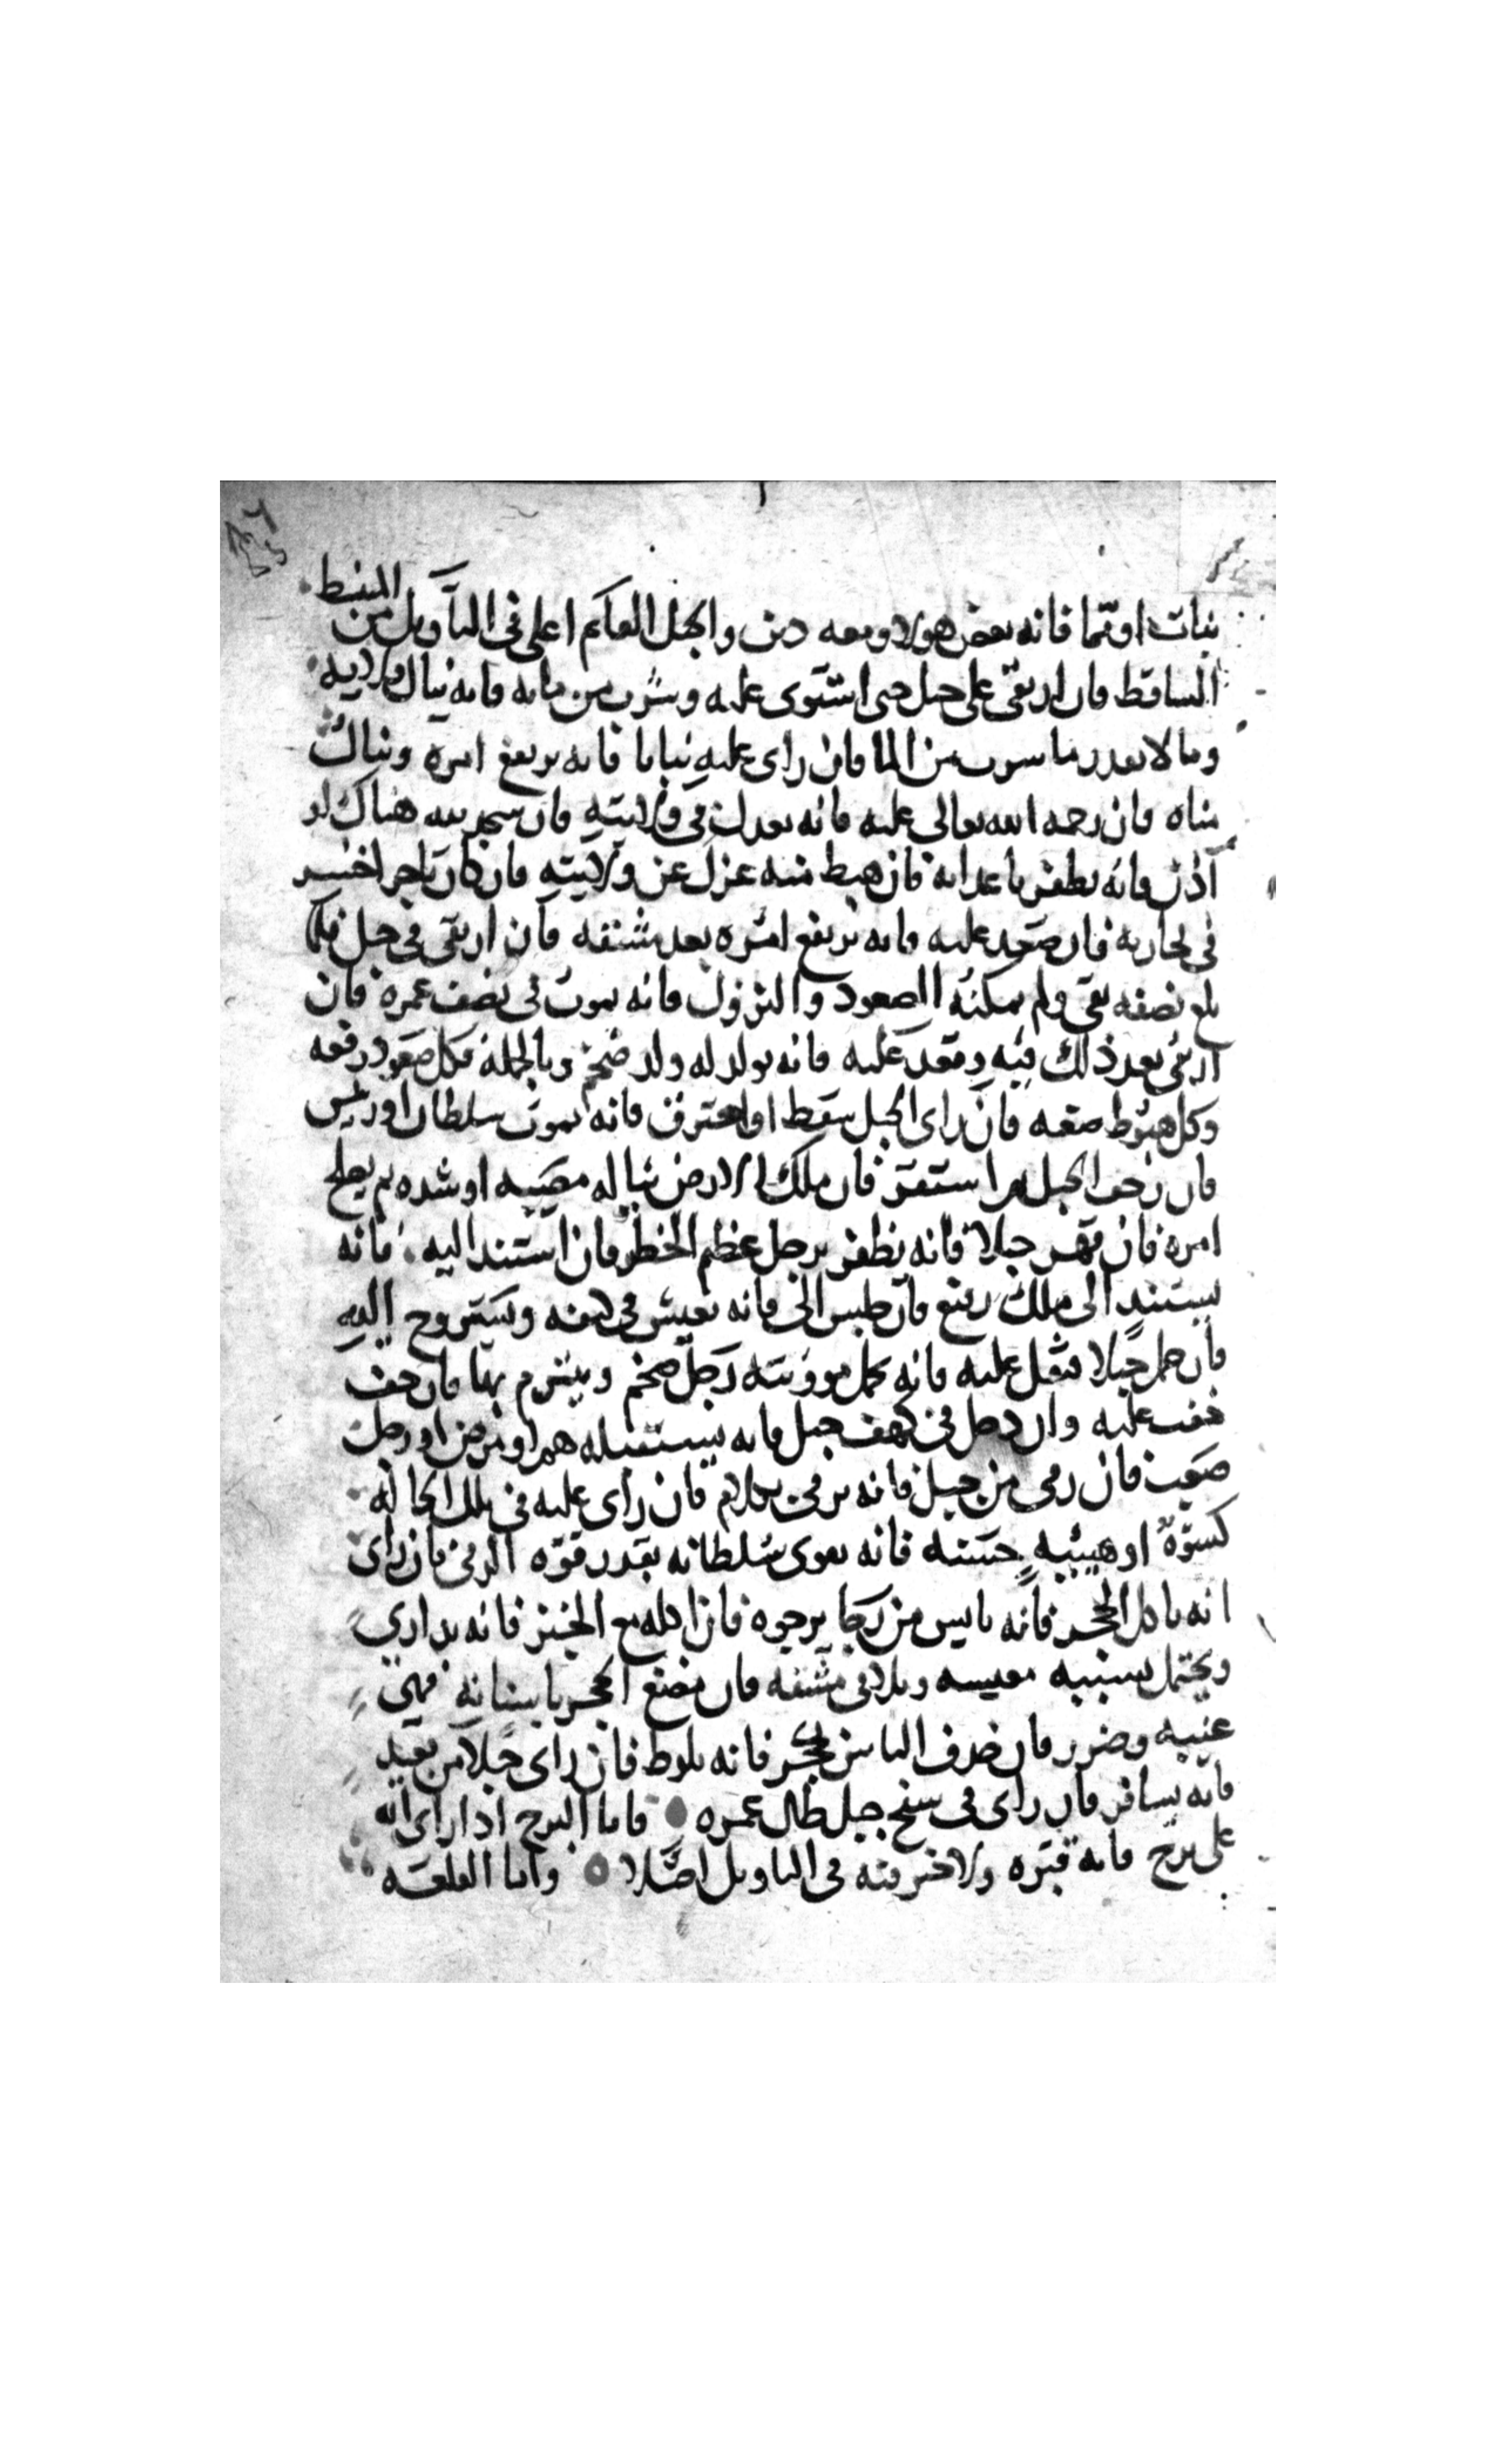 نبات اوتما فانه بعض هولا ومعه دين والجبل القايم اعلى في التاويل من المنبسط
الساقط فان ارتقى على جبل حتى استوى عليه وشرب من مايه فانه ينال ولايه
ومالا بقدر ما شرب من الما فان راى عليه نباتا فانه يرتفع امره وينال
مناه فان رحمه الله تعالى عليه فانه يعدل في ولايته فان سجد لله هناك او
اذن فانه يظفر باعدايه فان هبط منه عزل عن ولايته فان كان تاجر اخسر
في تجارته فان صعد عليه فانه يرتفع امره بعد مشقه فان ارتقى في جبل فلما
بلغ نصفه بقى ولم يمكنه الصعود والنزول فانه يموت في نصف عمره فان
ارتقى بعد ذلك فيه وقعد عليه فانه يولد له ولد ضخم وبالجمله فكل صعود رفعه
وكل هبوط ضعه فان راى الجبل سقط او احترق فانه يموت سلطان او رئيس
فان رجف الجبل ثم استقر فان ملك الارض يناله مصيبه او شده ثم يصلح
امره فان قهر جبلا فانه يظفر برجل عظيم الخطر فان استند اليه فانه
يستند الى ملك رفيع فان جلس الى فانه يعيش في كنفه ويستروح اليه
فان حمل جبلا فثقل عليه فانه يحمل موونته رجل ضخم ويبترم بها فان خف
خفت عليه وان دخل في كهف جبل فانه يستقبله هم او مرض او رجل
صعب فان رمى من جبل فانه يرمى بكلام فان راى عليه في تلك الحاله
كسوة او هييه حسنه فانه يقوى سلطانه بقدر قوة الرمى فان راى
انه ياكل الحجر فانه يايس من رجا يرجوه فان اكله مع الخبز فانه يداري
ويحتمل بسببه معيسه ويلاقى مشقه فان مضغ الحجر باسنانه فهي
غيبه وضرر فان حذف الناس بحجر فانه يلوط فان راى جبلا من بعيد
فانه يسافر فان راى في سفح جبل طال عمره فاما البرج اذا راى انه
على برج فانه قبره ولا خير فيه في التاويل اصلا واما القلعه